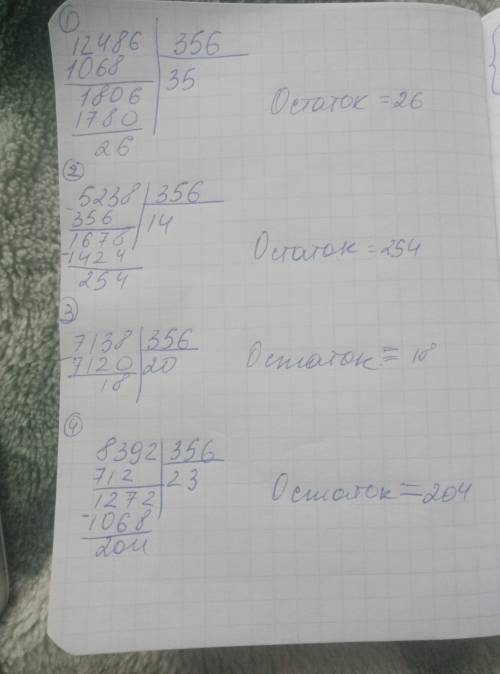 1
12486 356
1068 35
1806
1780
26
Остаток = 26
2
-5238 356
356 14
1678
-1424
254
Остаток = 254
3
-7138 356
7120 20
18
Остаток = 18
4
8392 356
712 23
1272
-1068
204
Остаток = 204